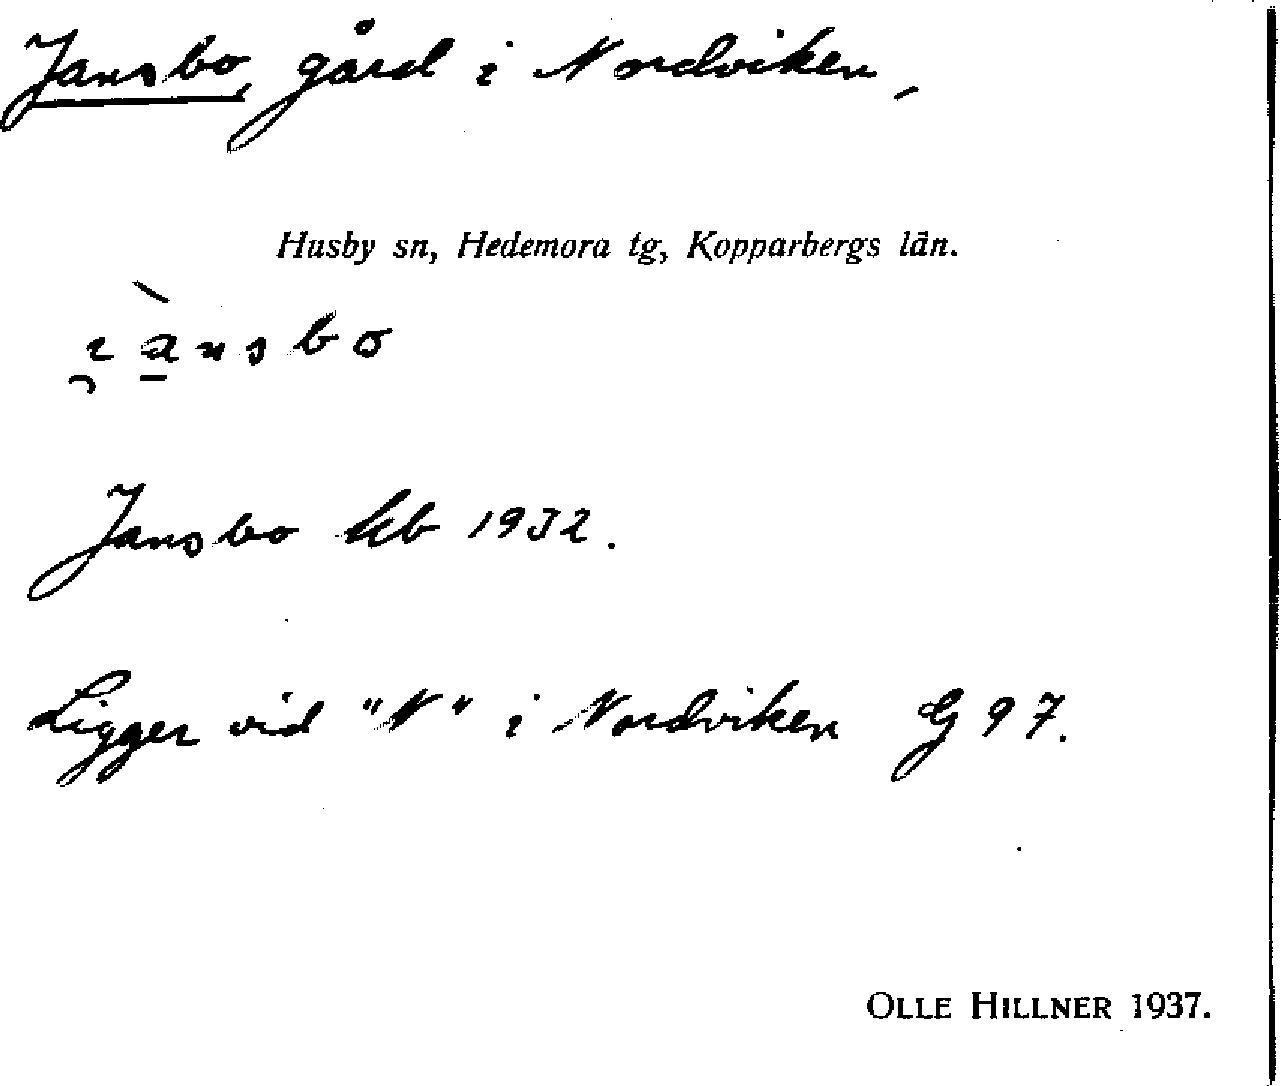 Jansbo, gård i Nordviken,
Husby sn, Hedemora tg, Kopparbergs län.
i̯à̱nsbo
Jansbo kb 1932.
Ligger vid "N" i Nordviken G 97.
OLLE HILLNER 1937.